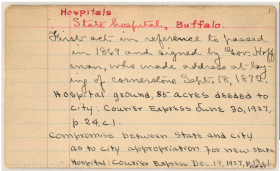 Hospitals
State hospital, Buffalo.
First act in reference to passed
in 1869 and signed by Gov. Hoff
man, who made address at lay
ing of cornerstone Sept. 18, 1872
Hospital ground, 86 acres deeded to
city. Courier Express June 30, 1927,
p. 24, c. 1.
Compromise between State and City
as to city appropriation for new state
Hospital: Courier Express Dec. 14, 1927,